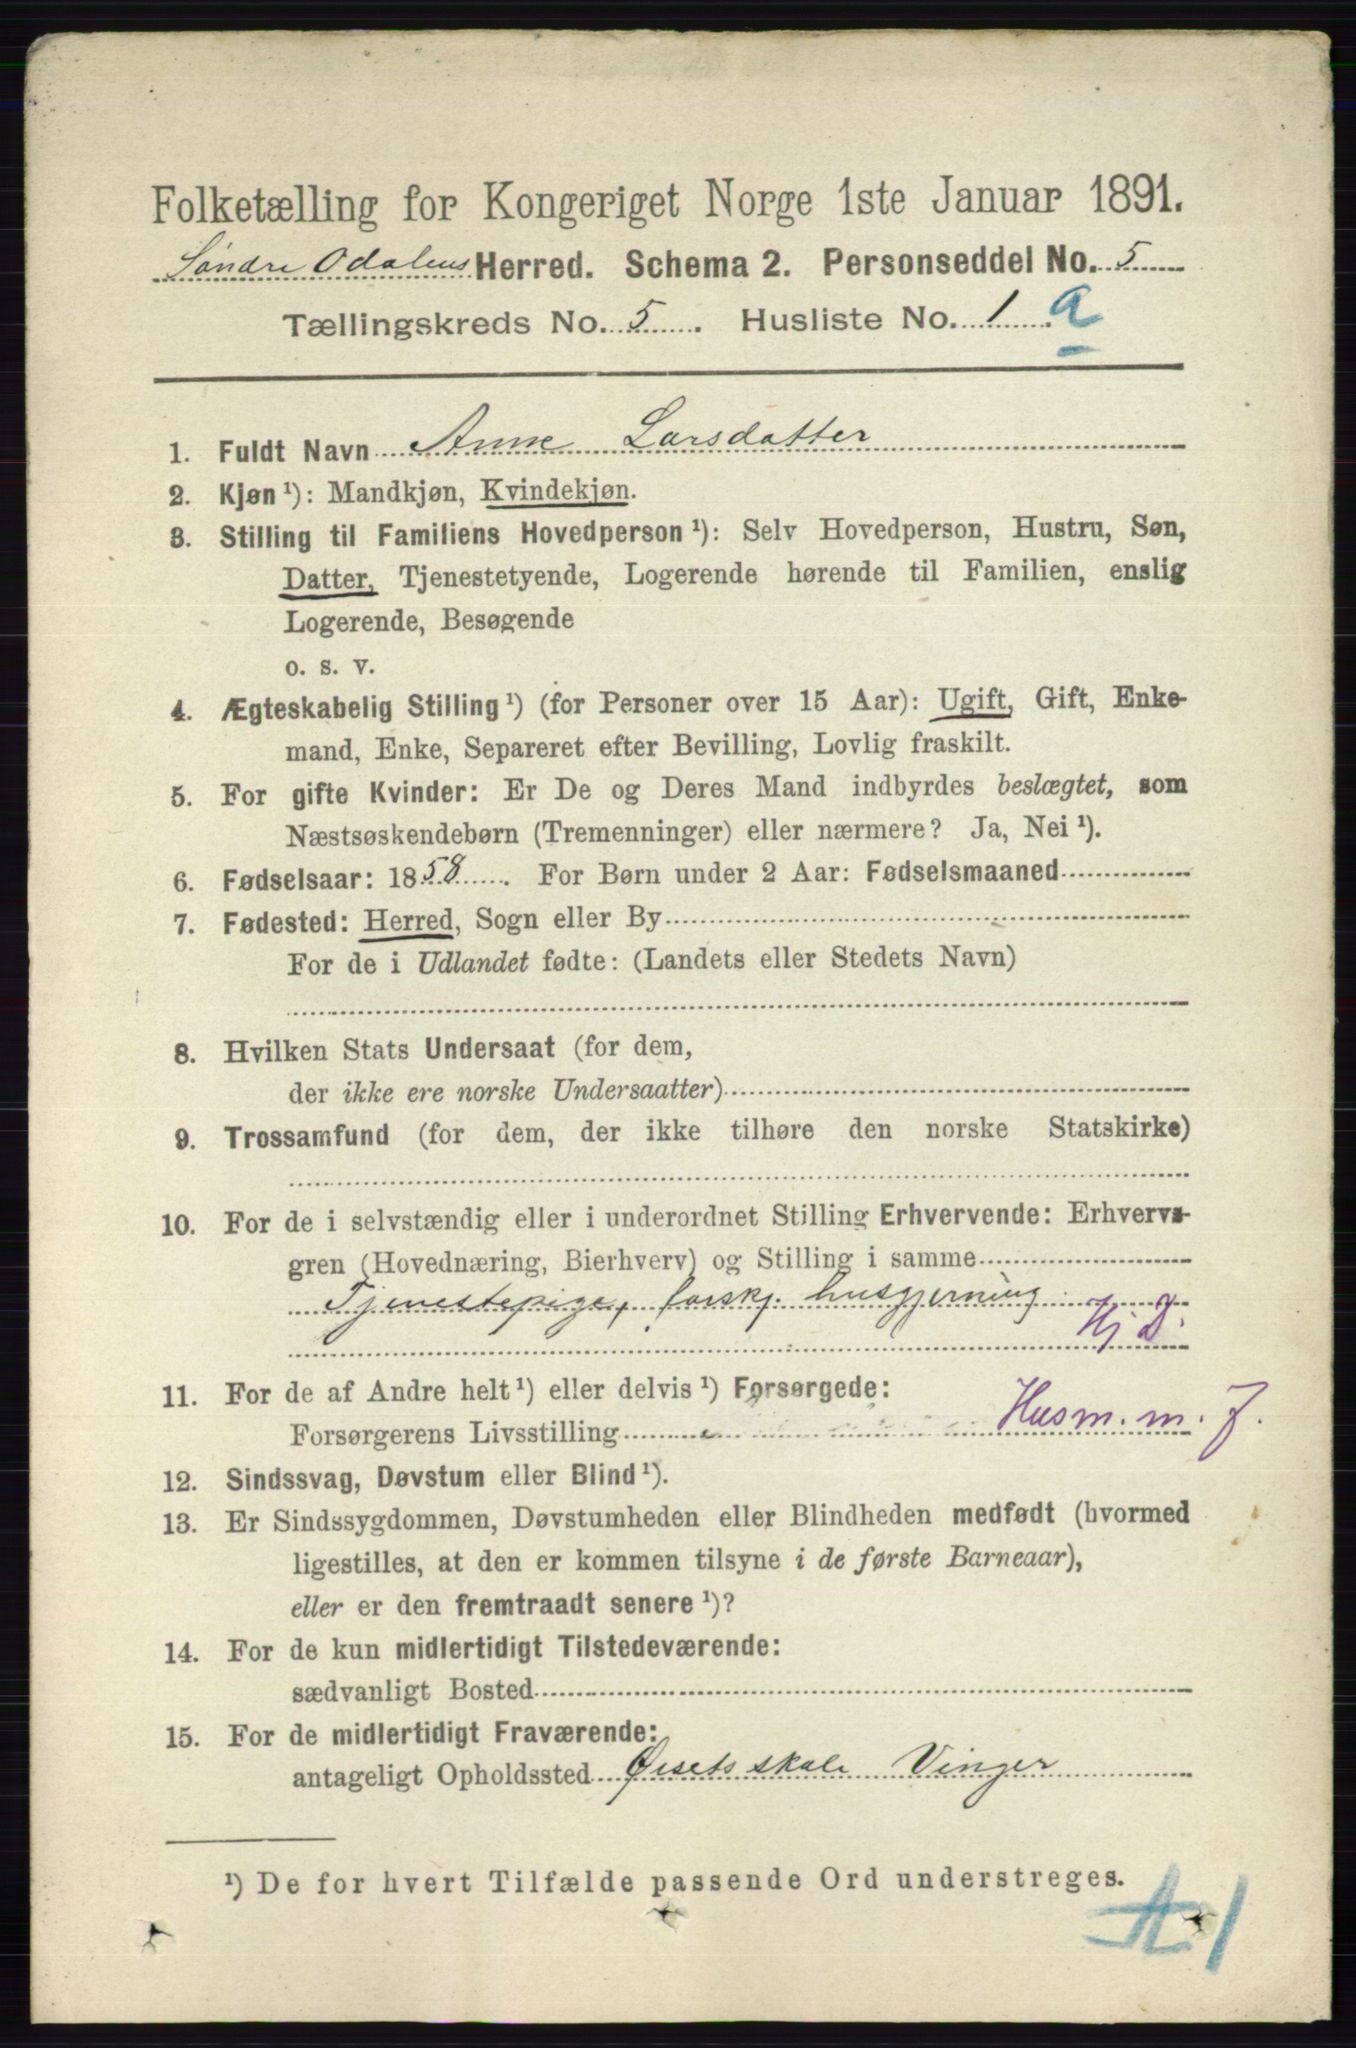 Folketælling for Kongeriget Norge 1ste Januar 1891.
Söndre Odalens Herred. Schema 2. Personseddel No. 5
Tællingskreds No. 5. Husliste No. 1 a
1. Fuldt Navn Anne Larsdatter
2. Kjøn ¹): Mandkjøn, Kvindekjøn.
3. Stilling til Familiens Hovedperson ¹): Selv Hovedperson, Hustru, Søn,
Datter, Tjenestetyende, Logerende hørende til Familien, enslig
Logerende, Besøgende
o. s. v.
4. Ægteskabelig Stilling ¹) (for Personer over 15 Aar): Ugift, Gift, Enke-
mand, Enke, Separeret efter Bevilling, Lovlig fraskilt.
5. For gifte Kvinder: Er De og Deres Mand indbyrdes beslægtet, som
Næstsøskendebørn (Tremenninger) eller nærmere? Ja, Nei ¹).
6. Fødselsaar: 1858. For Børn under 2 Aar: Fødselsmaaned
7. Fødested: Herred, Sogn eller By
For de i Udlandet fødte: (Landets eller Stedets Navn)
8. Hvilken Stats Undersaat (for dem,
der ikke ere norske Undersaatter)
9. Trossamfund (for dem, der ikke tilhøre den norske Statskirke)
10. For de i selvstændig eller i underordnet Stilling Erhvervende: Erhvervs-
gren (Hovednæring, Bierhverv) og Stilling i samme
Tjenestepige, forskj. husgjerning
Hj D.
11. For de af Andre helt ¹) eller delvis ¹) Forsørgede:
Forsørgerens Livsstilling Husm. m. J.
12. Sindssvag, Døvstum eller Blind ¹).
13. Er Sindssygdommen, Døvstumheden eller Blindheden medfødt (hvormed
ligestilles, at den er kommen tilsyne i de første Barneaar),
eller er den fremtraadt senere ¹)?
14. For de kun midlertidigt Tilstedeværende:
sædvanligt Bosted
15. For de midlertidigt Fraværende:
antageligt Opholdssted Øiset skole Vinger
¹) De for hvert Tilfælde passende Ord understreges.